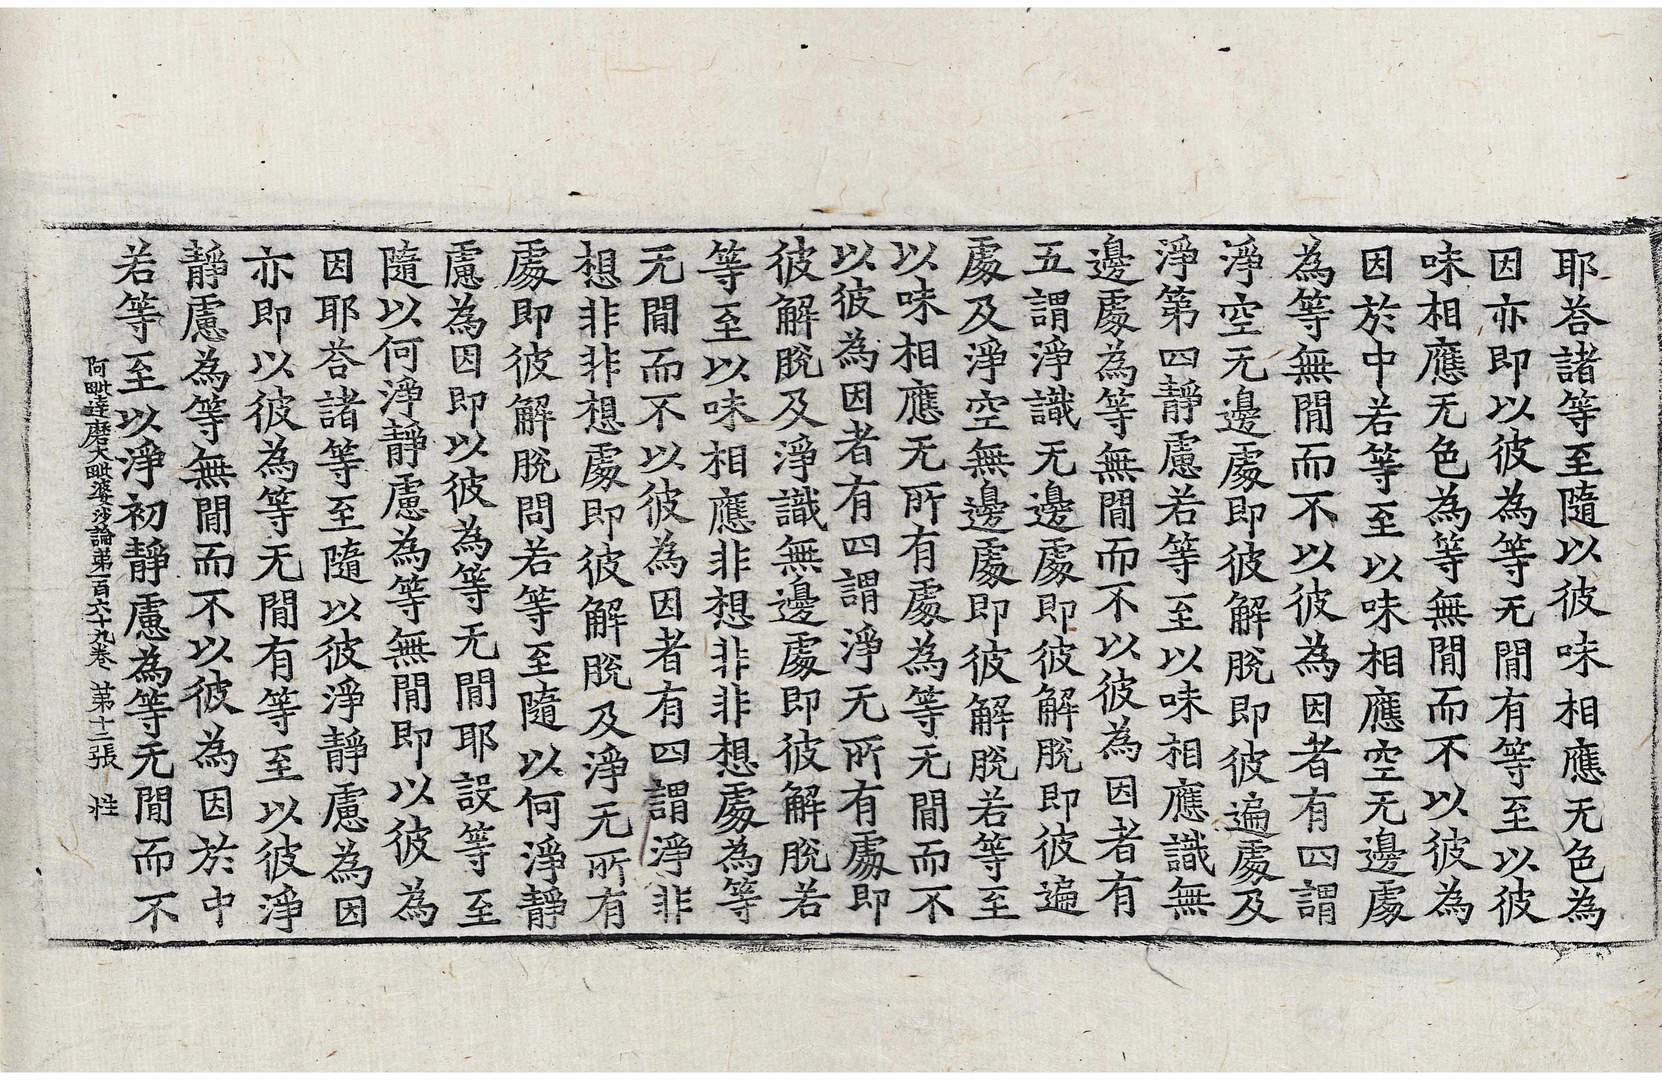 耶荅諸等至隨以彼味相應无色為
因亦即以彼為等无閒有等至以彼
味相應无色為等無閒而不以彼為
因於中若等至以味相應空无邊處
為等無閒而不以彼為因者有四謂
淨空无邊處即彼解脫即彼遍處及
淨第四靜慮若等至以味相應識無
邊處為等無閒而不以彼為因者有
五謂淨識无邊處即彼解脫即彼遍
處及淨空無邊處即彼解脫若等至
以味相應无所有處為等无閒而不
以彼為因者有四謂淨无所有處即
彼解脫及淨識無邊處即彼解脫若
等至以味相應非想非非想處為等
无閒而不以彼為因者有四謂淨非
想非非想處即彼解脫及淨无所有
處即彼解脫問若等至隨以何淨靜
慮為因即以彼為等无閒耶設等至
隨以何淨靜慮為等無閒即以彼為
因耶荅諸等至隨以彼淨靜慮為因
亦即以彼為等无閒有等至以彼淨
靜慮為等無閒而不以彼為因於中
若等至以淨初靜慮為等无閒而不
阿毗達磨大毗婆沙論第一百六十九卷 第十二張 性